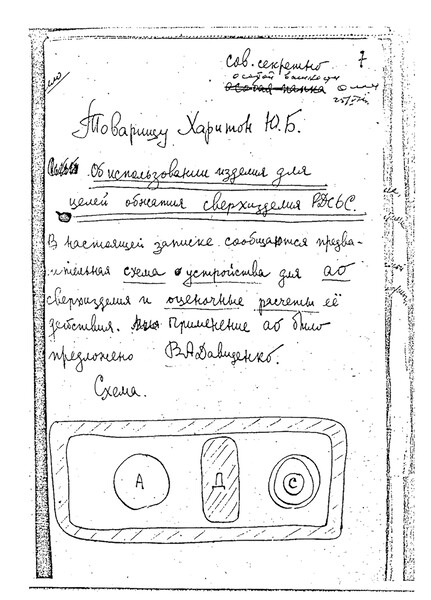 7
сов. секретно
особой важности
особая папка
Товарищу Харитон Ю.Б.
Об использовании изделия для
целей обжатия сверхизделия РДС6С.
В настоящей записке сообщаются предва-
рительная схема устройства для ао
сверхизделия и оценочные расчеты её
действия. Применение ао было
предложено В.А. Давиденко.
Схема.
А Д С